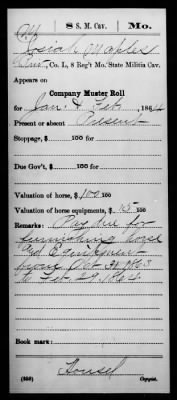 8 S. M. Cav. Mo.
Josiah Maples
Priv., Co. L, 8 Reg't Mo. State Militia Cav.
Appears on
Company Muster Roll
for Jan. & Feb., 1864
Present or absent Present
Stoppage, $ 100 for
Due Gov't, $ 100 for
Valuation of horse, $ 100 100
Valuation of horse equipments, $ 15 100
Remarks: Pay due for
furnishing horse
and Equipment
from Oct 31 1863
to Feb 29 1864
Book mark:
Housel
(858) Copyist.